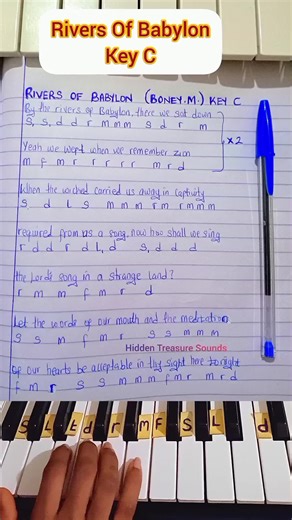 Rivers Of Babylon
Key C
RIVERS OF BABYLON (BONEY.M.) KEY C
By the rivers of Babylon, there we sat down
S, S, d d r m m m s d r m
x2
Yeah we wept when we remember zion
m f m r r r r r m r d
When the wicked carried us away in captivity
S d L S m m m r m r m m m
required from us a song, now how shall we sing
r d d r d L, d S, d d d
the Lord's song in a strange land?
r m m f m r d
Let the words of our mouth and the meditation
S S m f m r S S m m m
Hidden Treasure Sounds
of our hearts be acceptable in thy sight here tonight
f m r S S m m m f m r m r d
S L t d r m F S L d